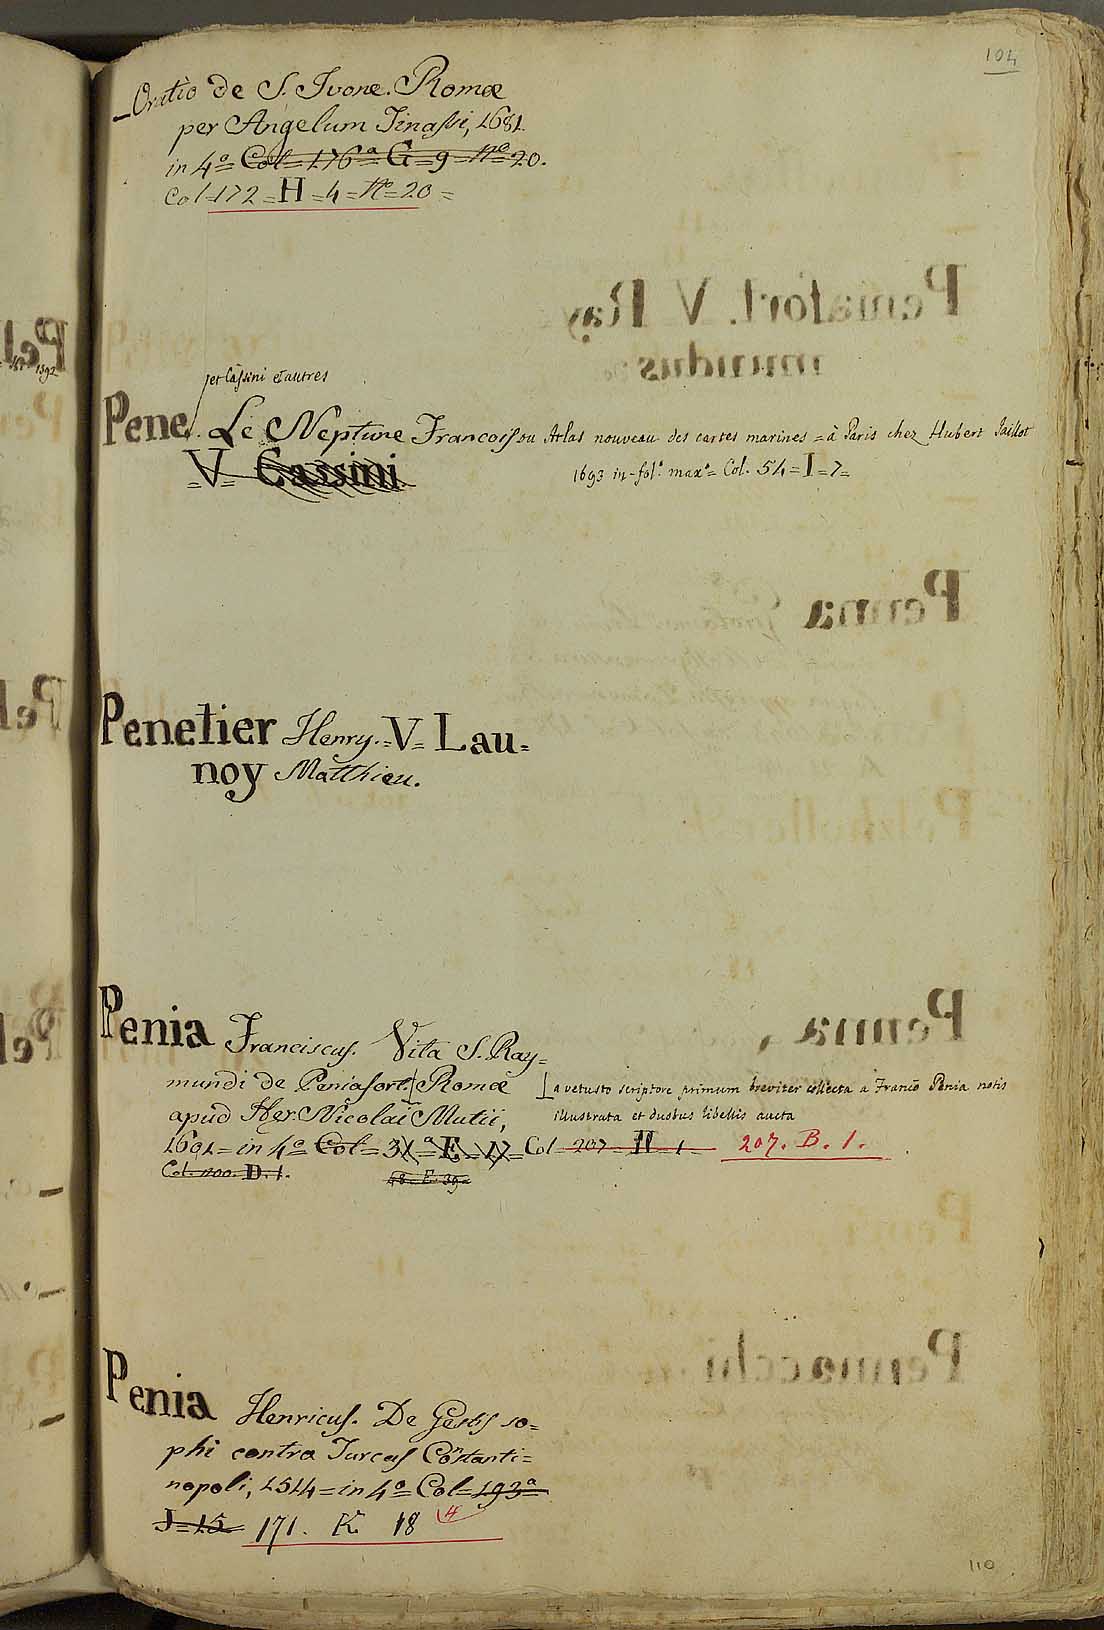 104
Oratio de S. Ivone. Romæ
per Angelum Tinassi, 1681.
in 4º = Col = 176ª G = 9 = Nº 20.
Col = 172 = H = 4 = Nº = 20 =
et Cassini et autres
Pene. Le Neptune Francois ou Atlas nouveau des cartes marines = à Paris chez Hubert Jaillot
= V = Cassini
1693 in-folº maxº = Col. 54 = I = 7 =
Penetier Henry. = V = Lau=
noy Matthieu.
Penia Franciscus. Vita S. Ray=
mundi de Peniafort. Romæ
a vetusto scriptore primum breviter collecta a Franco Penia notis
apud Her. Nicolai Mutii,
illustrata et duobus libellis aucta
1601 = in 4º = Col = E = 17 = Col 207 H 1 207. B. 1.
Col. D. 1.
Penia Henricus. De Gestis so=
phi contra Turcas Constanti=
nopoli, 1514 = in 4º = Col = 193ª
J = 15 171. K 18 4
110